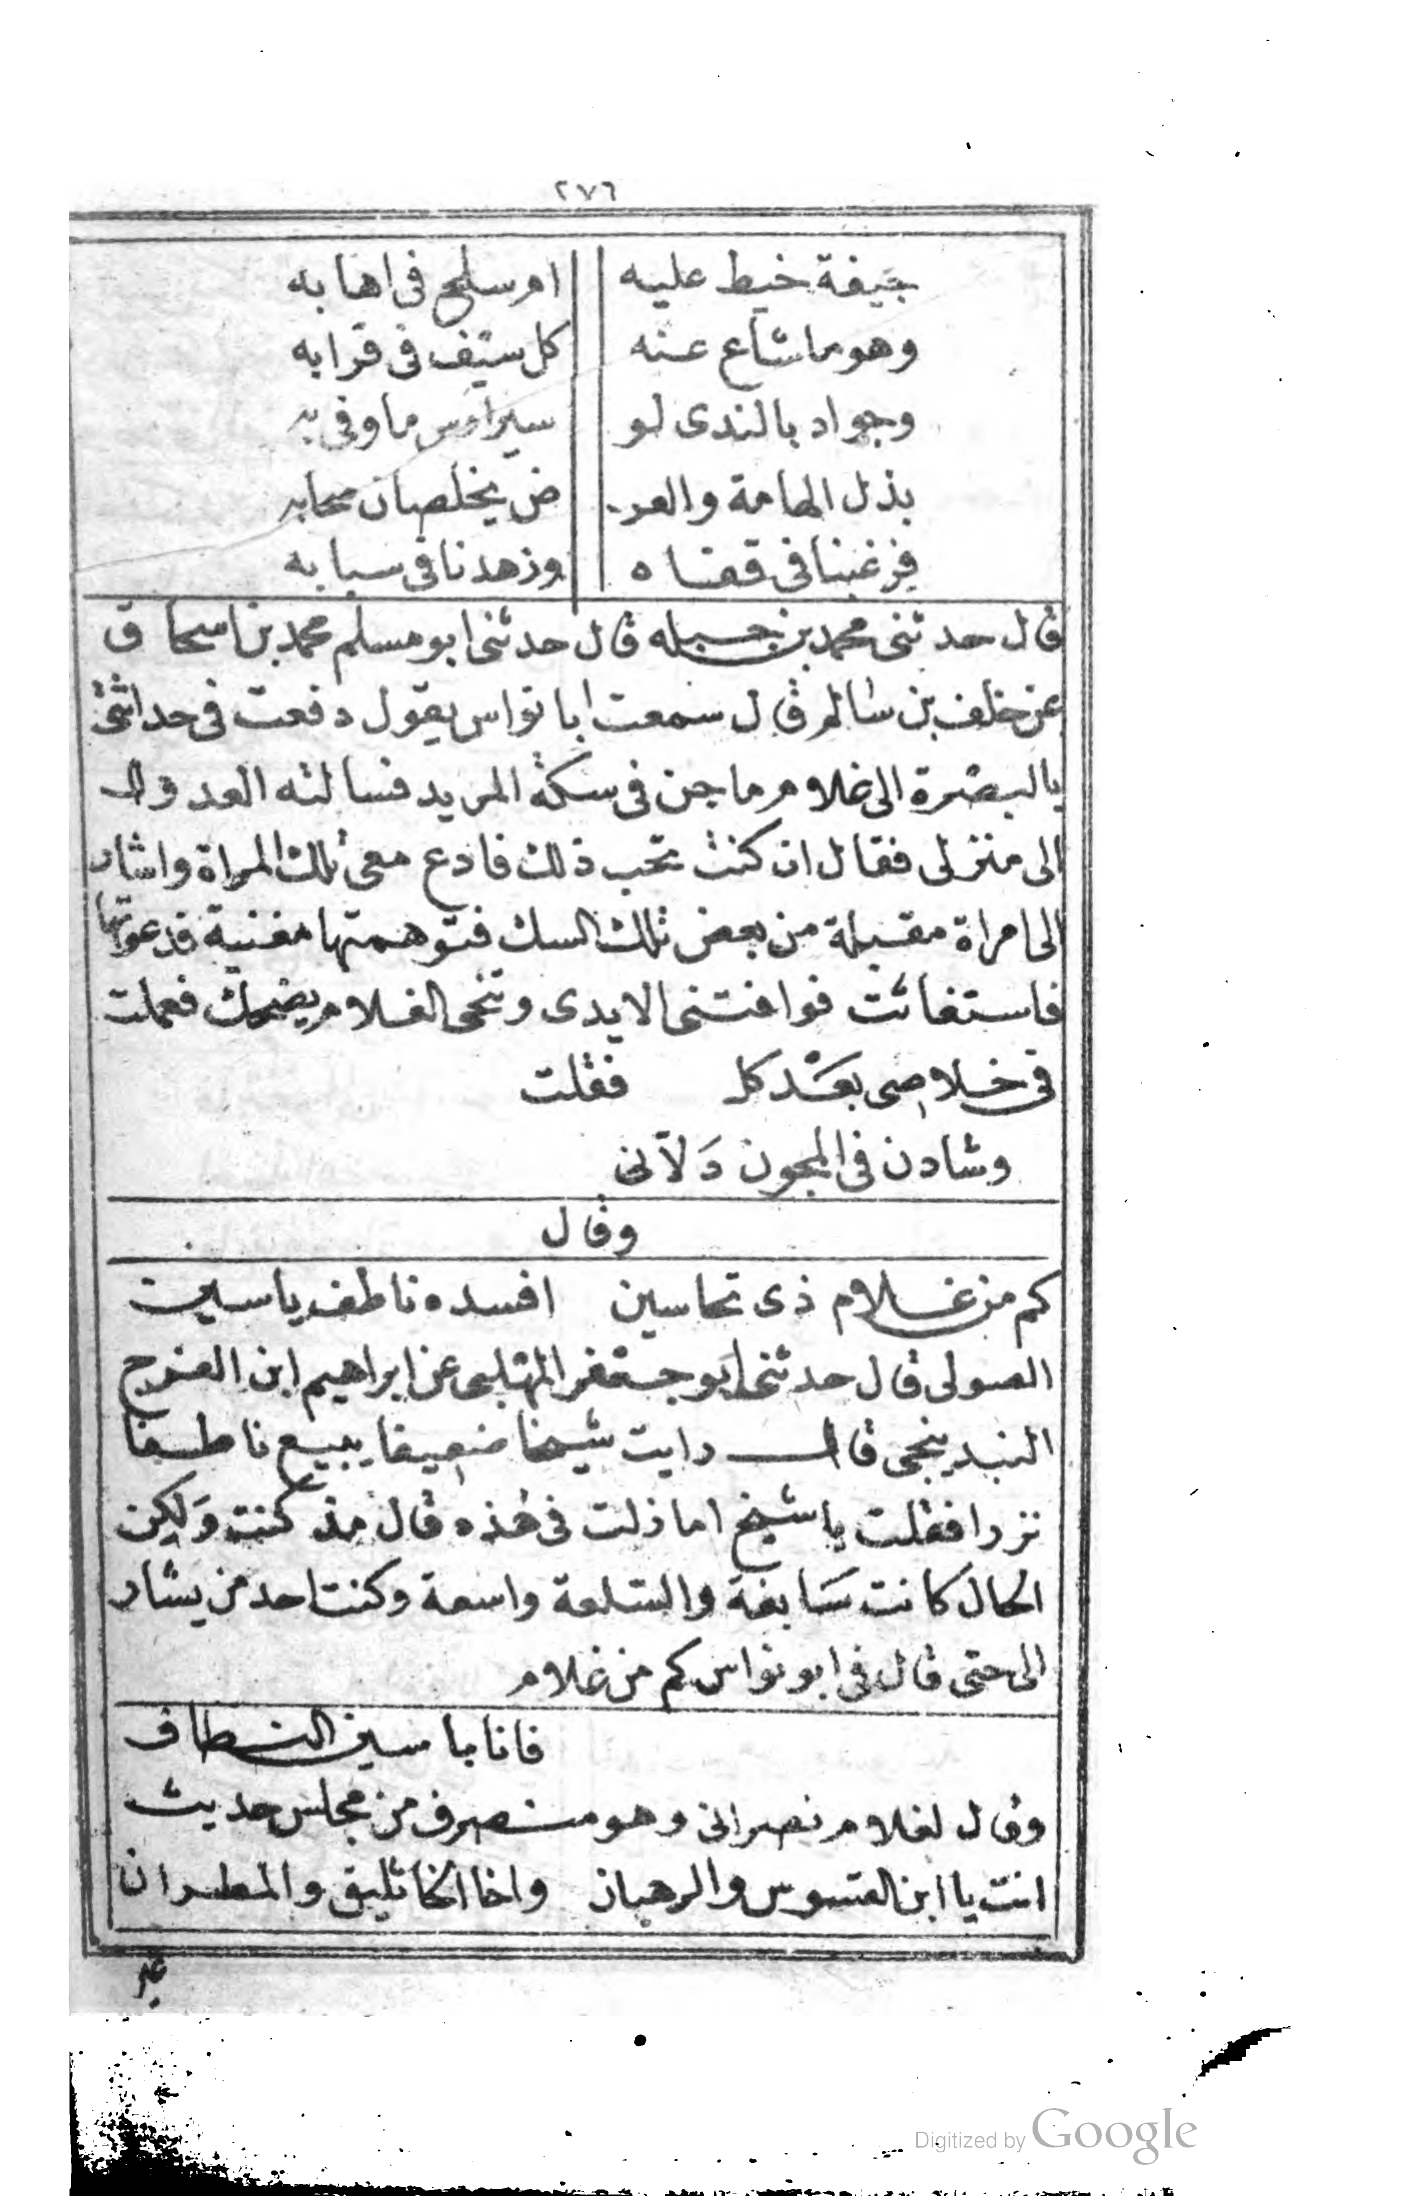 ٢٧٦
جيفة خيط عليه ام سلح فى اهابه
وهو ما شاع عنه كل ستيف فى قرابه
وجواد بالندى لو سيراوس ما وفى به
بذل الهامة والعر ض يخلصان صحابه
فرغبنا فى قفاه وزهدنا فى سبابه
قال حدثنى محمد بن جبله قال حدثنى ابو مسلم محمد بن اسحاق
عن خلف بن سالم قال سمعت ابا نواس يقول دفعت فى حداثتى
بالبصرة الى غلام ماجن فى سكة المربد فسالته العدول
الى منزلى فقال ان كنت تحب ذلك فادع معى تلك المراة واشار
الى امراة مقبلة من بعض تلك السكك فتوهمتها مغنية فدعوتها
فاستغاثت فوافتنى الايدى وتنحى الغلام يضحك فعملت
فى خلاصى بعد كل فقلت
وشادن فى المجون دَلّانى
وقال
كم من غلام ذى تحاسين افسده ناطف ياسين
الصولى قال حدثنى ابو جعفر المهلبى عن ابراهيم ابن الفرج
البنديجى قال رايت شيخا ضعيفا يبيع ناطفا
نزرا فقلت يا شيخ اما زلت فى هذه قال مذ كنت وَلكن
الحال كانت سَابغة والسلعة واسعة وكنت احد من يشار
الى حتى قال فى ابو نواس كم من غلام
فانا ياسين النطاف
وقال لغلام نصرانى وهو منصرف من مجلس حديث
انت يا ابن القسوس والرهبان واخا الخاثليق والمطران
Digitized by Google